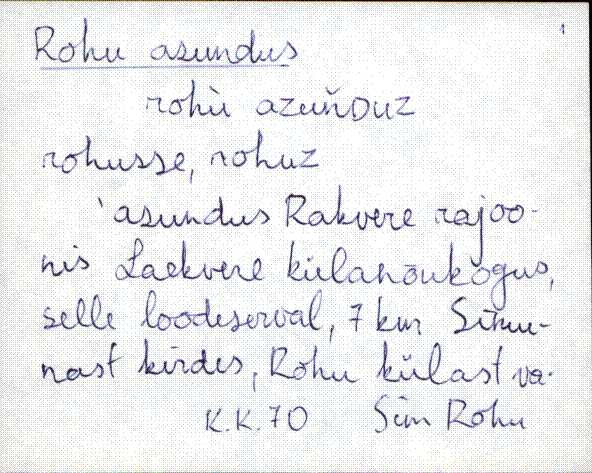 1
Rohu asundus
rohù azuňDuz
rohusse, rohuz
'asundus Rakvere rajoo-
nis Laekvere külanõukogus,
selle loodeserval, 7 km Simu-
nast kirdes, Rohu külast va-
K.K.70 Sim Rohu